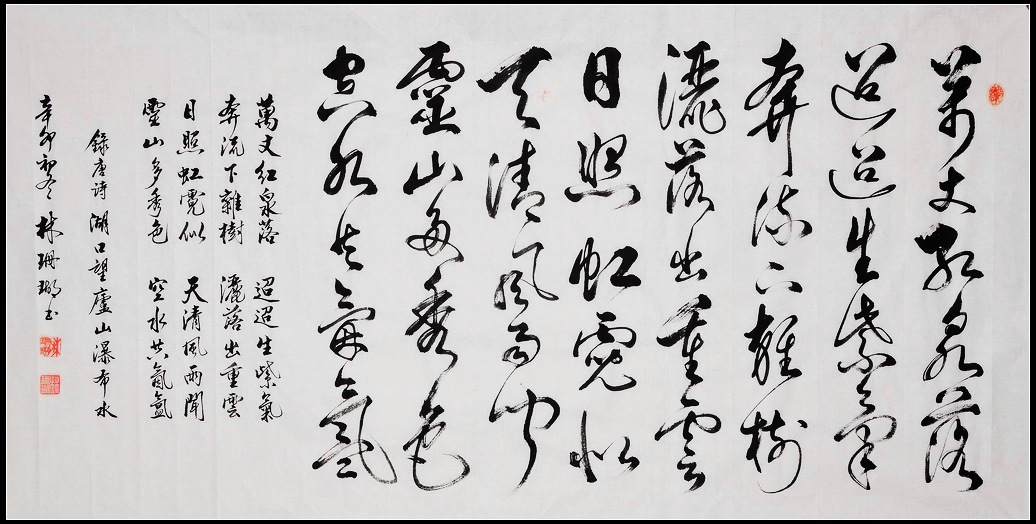 萬丈紅泉落
迢迢生紫氣
奔流下雜樹
灑落出重雲
日照虹霓似
天清風雨聞
靈山多秀色
空水共氤氳
萬丈紅泉落 迢迢生紫氣
奔流下雜樹 灑落出重雲
日照虹霓似 天清風雨聞
靈山多秀色 空水共氤氳
錄唐詩 湖口望廬山瀑布水
辛卯初冬 林珊瑚